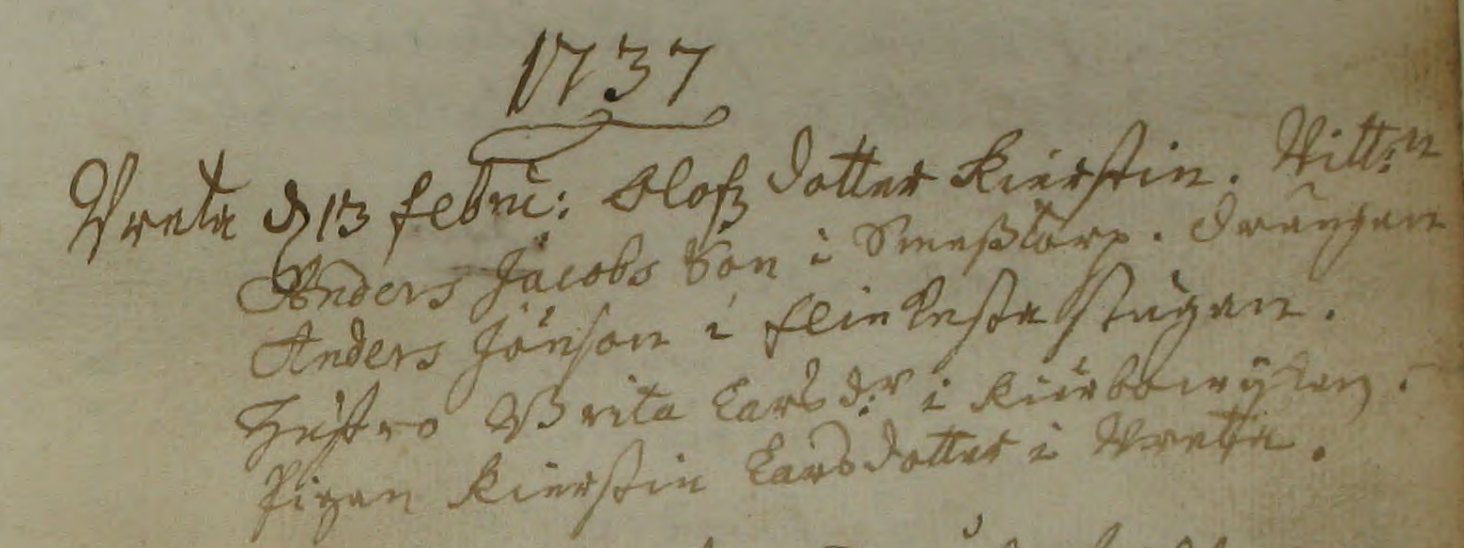 1737
Vreta d 13 febru: Olofz dotter Kierstin. Vitt:n
Anders Jacobs Son i Smesstorp. Drängen
Anders Jönson i flinkesta stugan.
Hustro Brita Larsd:r i
Pigan Kierstin Larsdotter i Vreta.